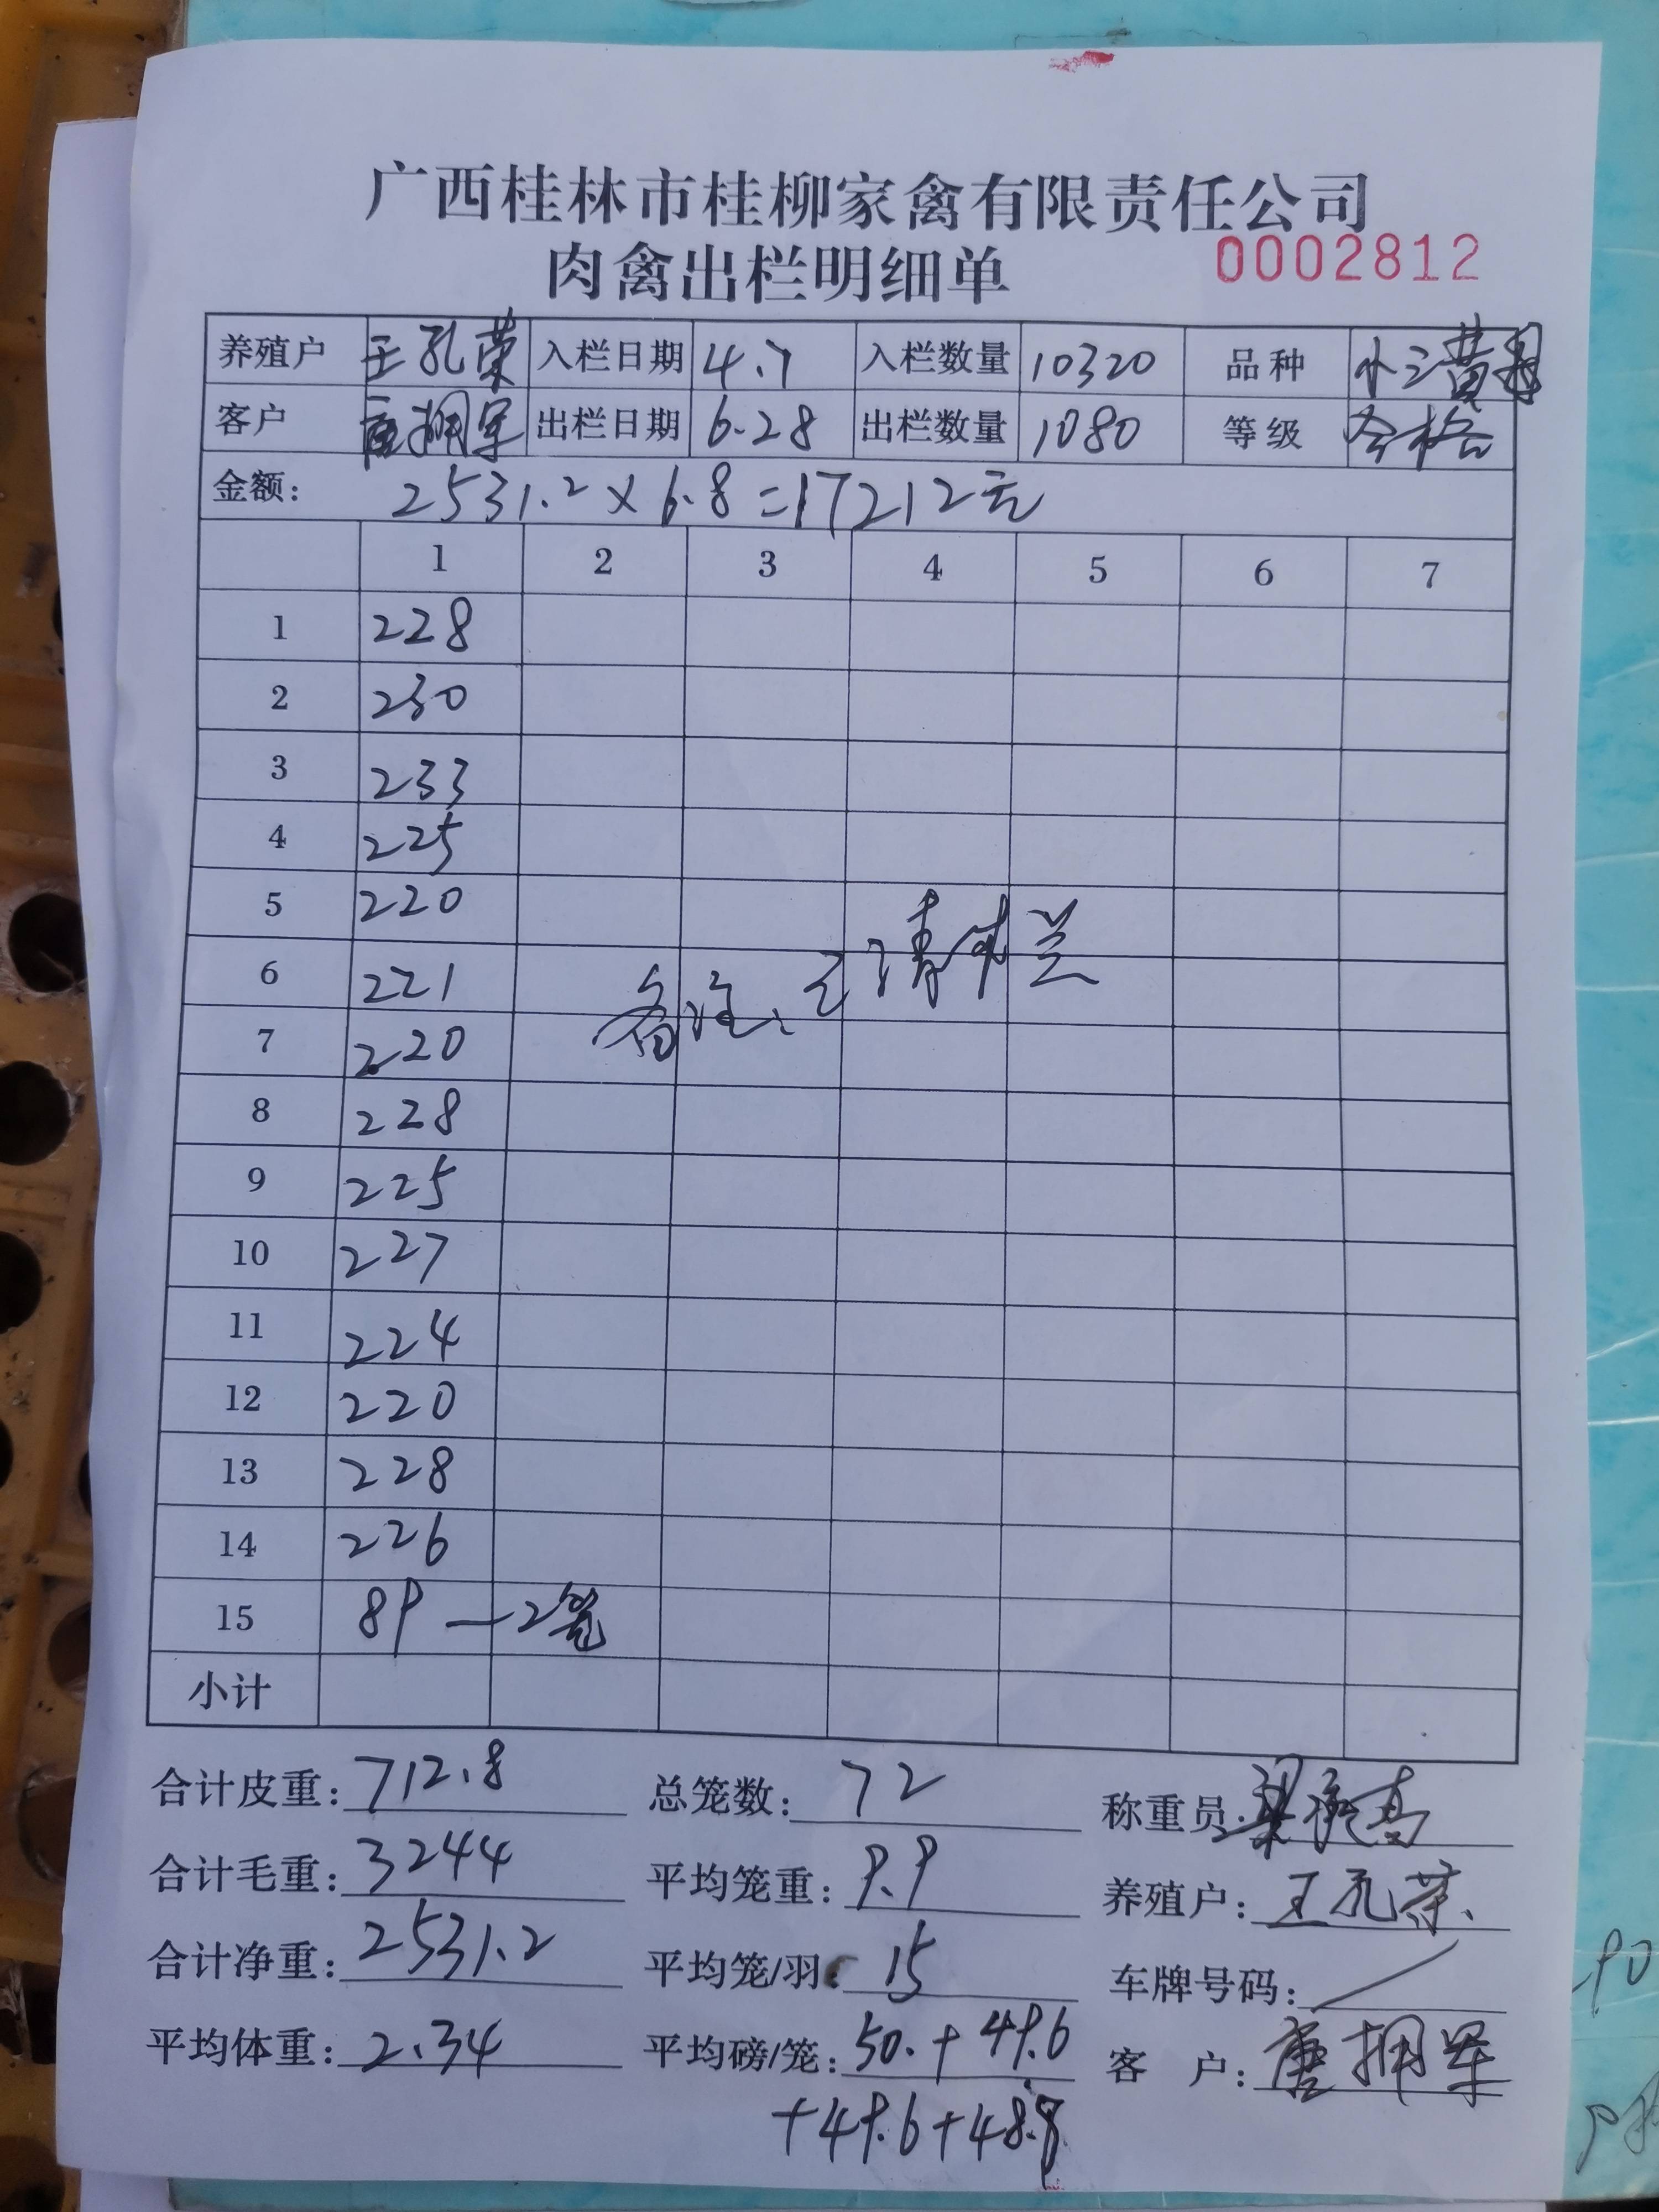 广西桂林市桂柳家禽有限责任公司
肉禽出栏明细单 0002812
养殖户 王孔荣 入栏日期 4.7 入栏数量 10320 品种 小三黄
客户 唐拥军 出栏日期 6.28 出栏数量 1080 等级 合格
金额: 2531.2×6.8=17212元
1 2 3 4 5 6 7
1 228
2 230
3 233
4 225
5 220
6 221
7 220
8 228
9 225
10 227
11 224
12 220
13 228
14 226
15 89—2笼
备注:已清
小计
合计皮重: 712.8 总笼数: 72 称重员:
合计毛重: 3244 平均笼重: 9.9 养殖户: 王孔荣
合计净重: 2531.2 平均笼/羽: 15 车牌号码: /
平均体重: 2.34 平均磅/笼: 50.+49.6 客 户: 唐拥军
+49.6+48.8